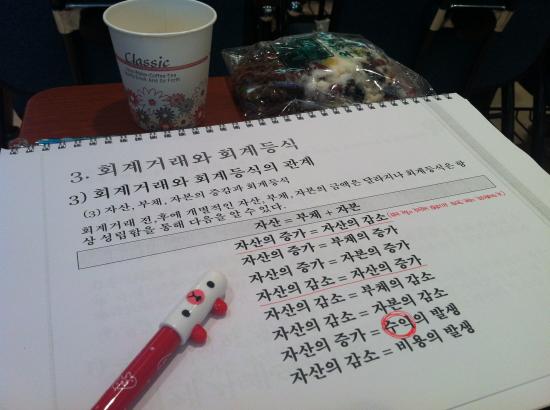 Classic
3. 회계거래와 회계등식
3) 회계거래와 회계등식의 관계
(3) 자산, 부채, 자본의 증감과 회계등식
회계거래 전,후에 개별적인 자산, 부채, 자본의 금액은 달라지나 회계등식은 항
상 성립함을 통해 다음을 알 수 있다.
자산 = 부채 + 자본
자산의 증가 = 자산의 감소
자산의 증가 = 부채의 증가
자산의 증가 = 자본의 증가
자산의 감소 = 자산의 증가
자산의 감소 = 부채의 감소
자산의 감소 = 자본의 감소
자산의 증가 = 수익의 발생
자산의 감소 = 비용의 발생